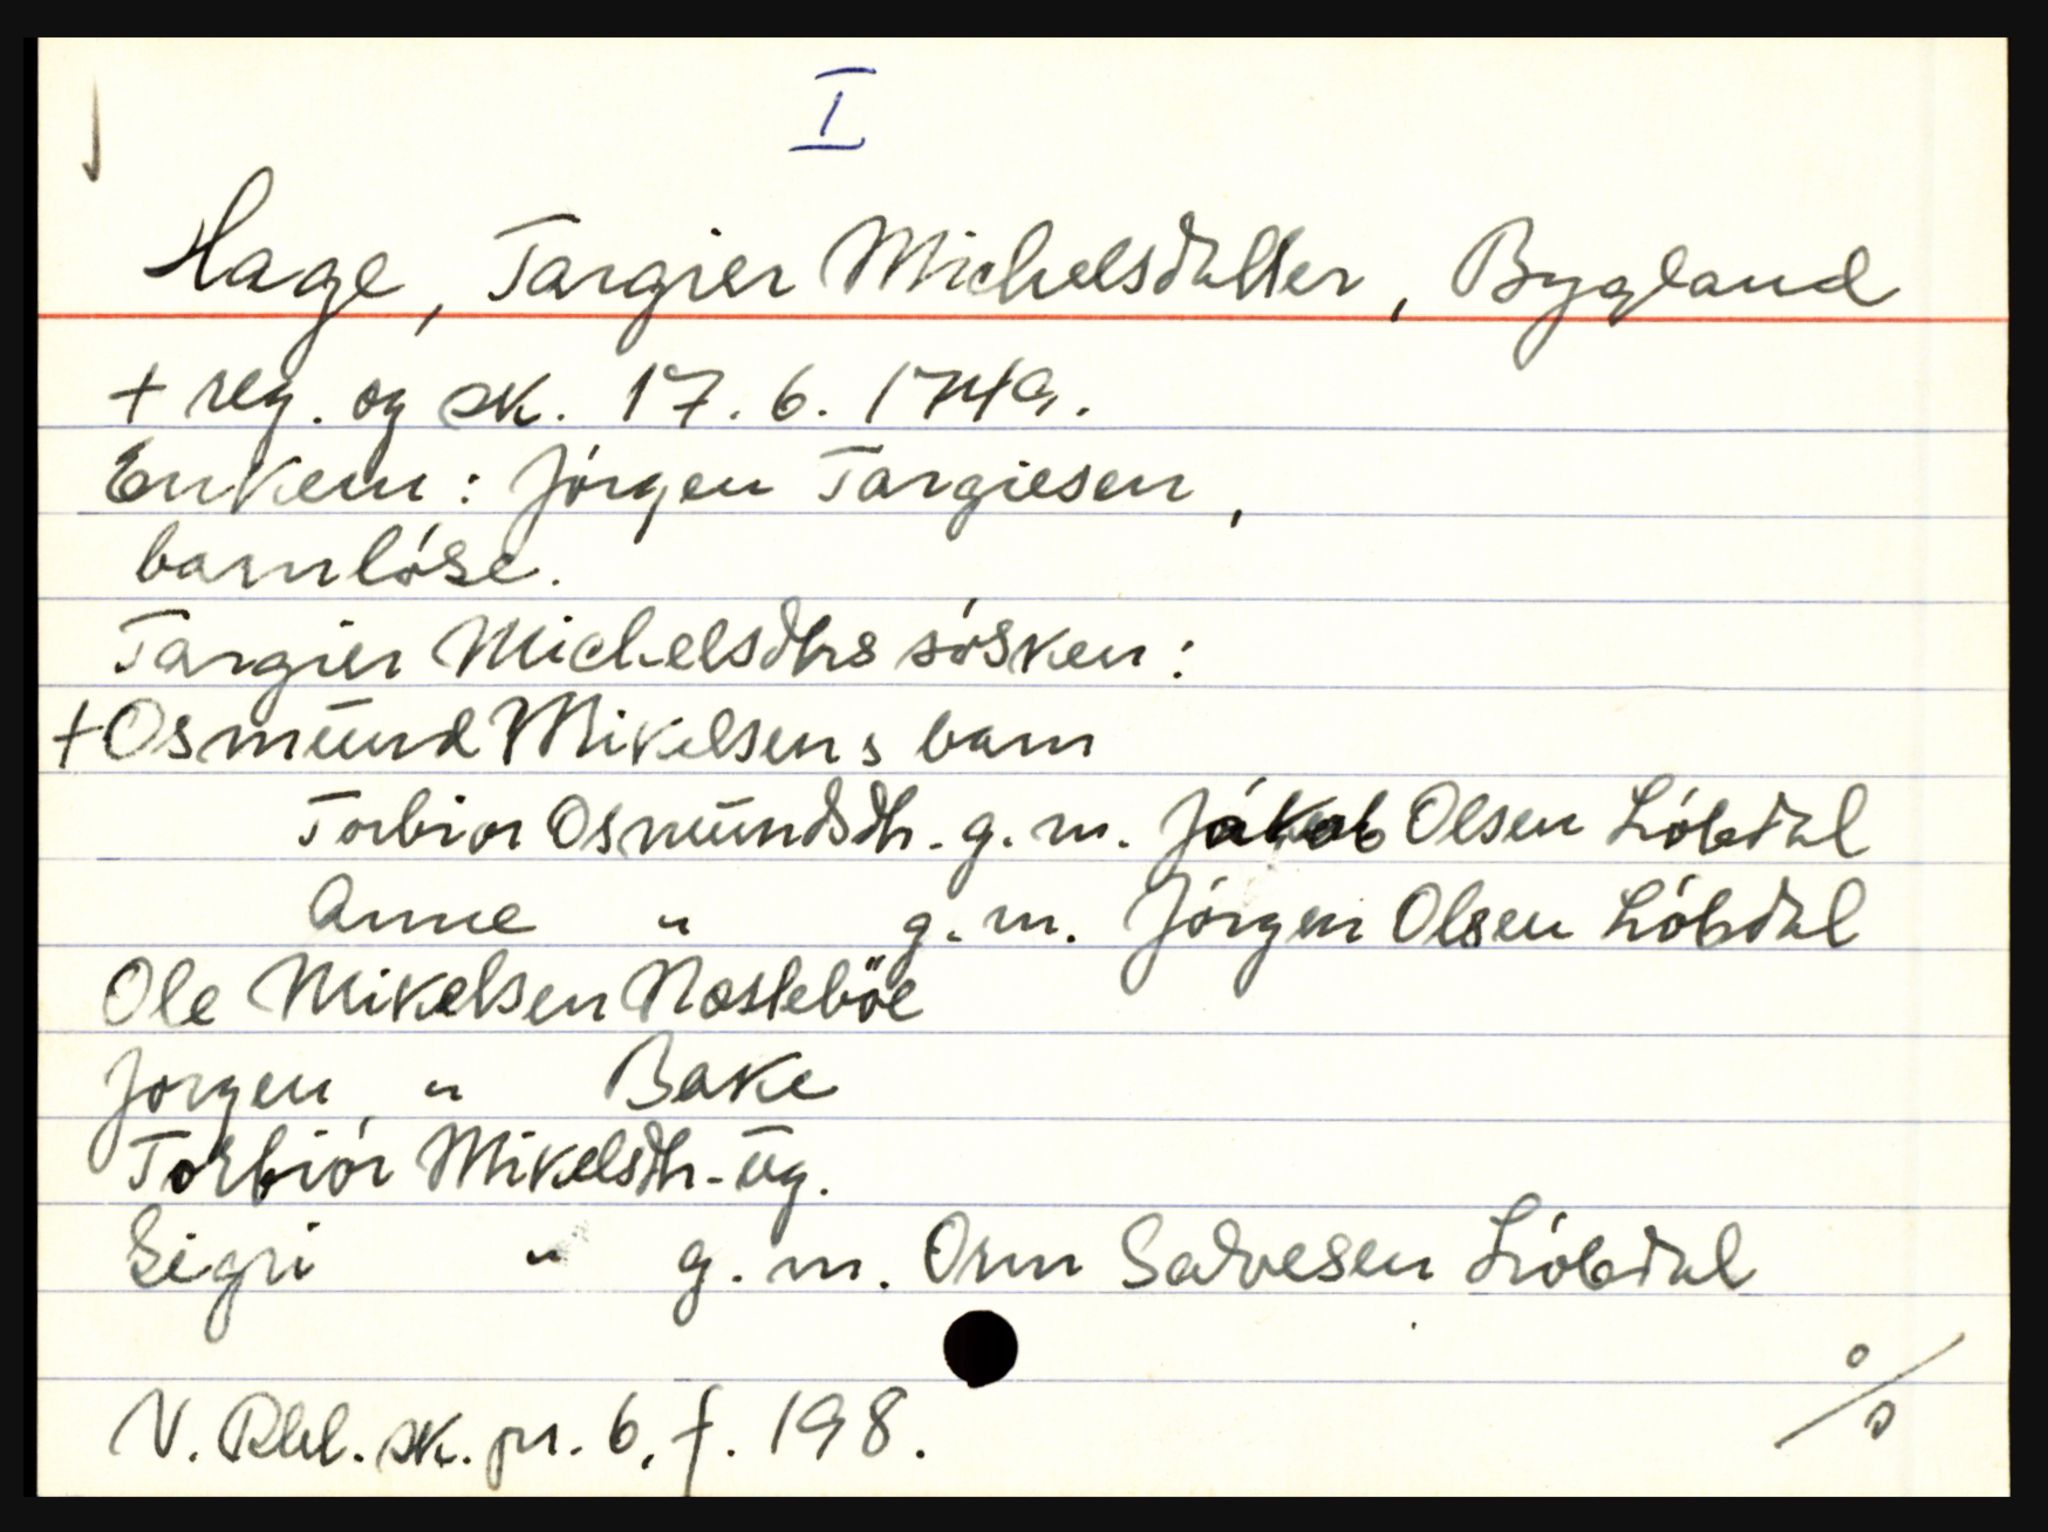 I
Hage, Targier Michelsdatter, Bygland
+ reg. og sk. 17. 6. 1749.
Enkem: Jörgen Targiesen,
barnlöse.
Targier Michelsdtrs sösken:
+ Osmŭnd Mikelsens barn
Torbiör Osmŭndsdtr. g. m. Jákob Olsen Liöbdal
Anne " g. m. Jörgen Olsen Liöbdal
Ole Mikelsen Nesteböe
Jörgen " Bake
Torbiör Mikelsdtr. ŭg.
Sigri " g. m. Orm Salvesen Liöbdal
N. Rbl. sk. pr. 6, f. 198.
%